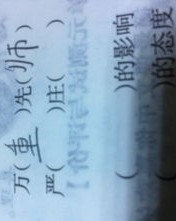 万(重)先(师)
严(  )庄(  )
(  )的影响
(  )的态度